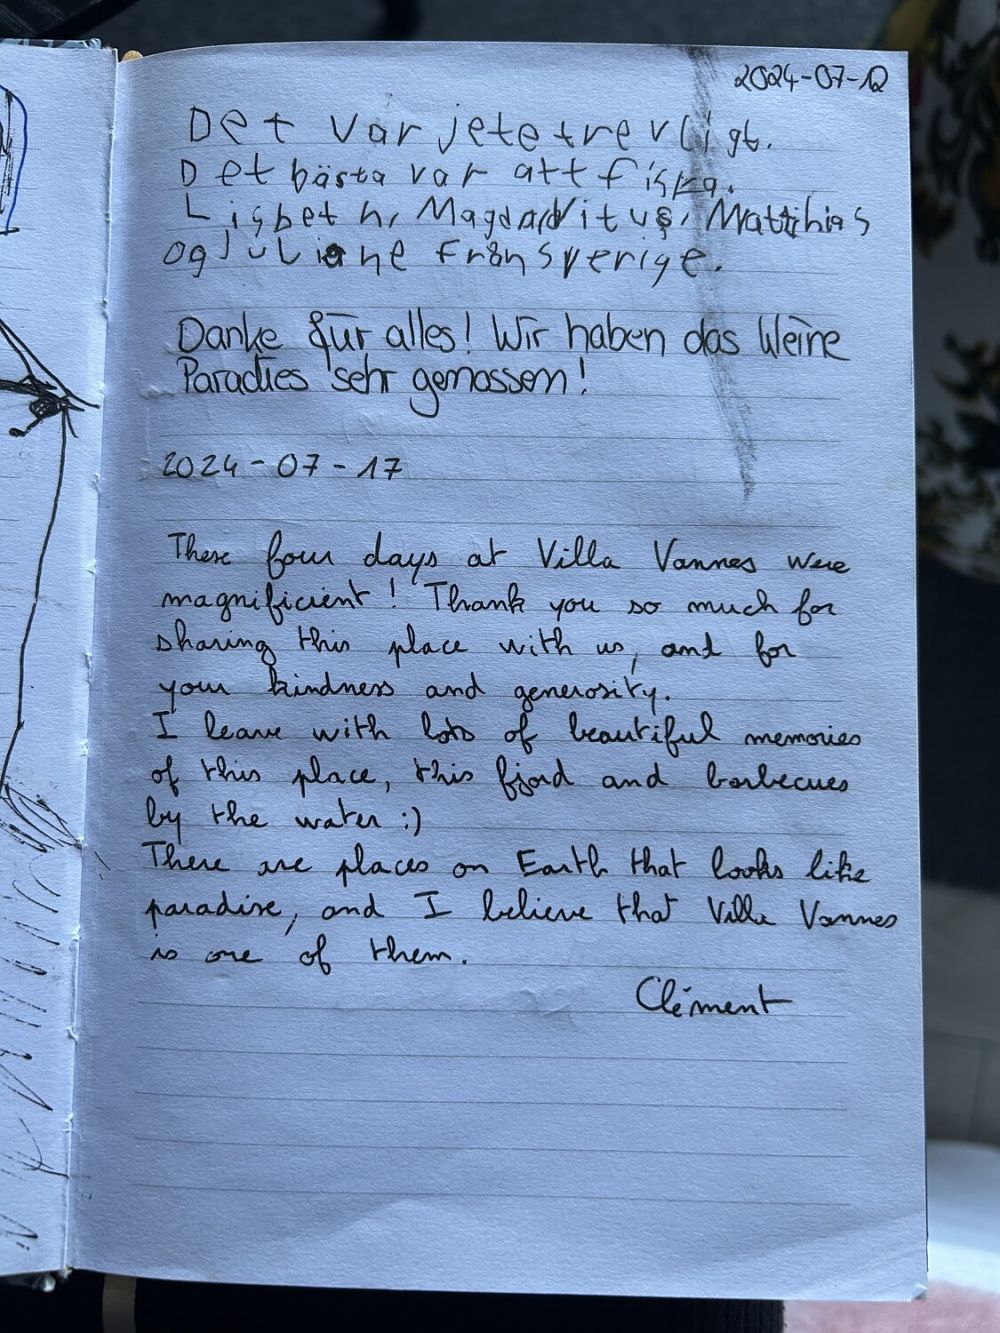 2024-07-12
Det var jetetrevligt.
Det bästa var att fiska.
Lisbeth, Magda, Vitus, Matthias
og Juliane från sverige.
Danke für alles! Wir haben das kleine
Paradies sehr genossen!
2024-07-17
These four days at Villa Vannes were
magnificient! Thank you so much for
sharing this place with us, and for
your kindness and generosity.
I leave with lots of beautiful memories
of this place, this fjord and barbecues
by the water :)
There are places on Earth that looks like
paradise, and I believe that Villa Vannes
is one of them.
Clément